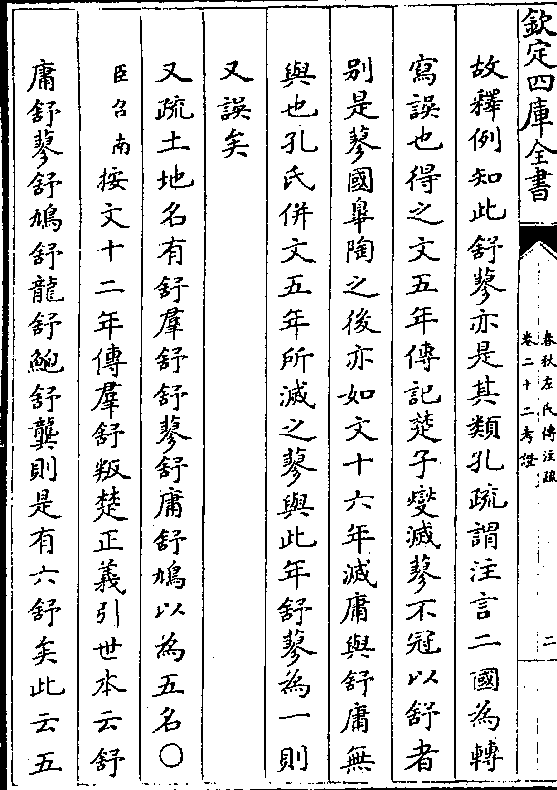 欽定四庫全書
春秋左氏傳注疏
卷二十二考證
二
故釋例知此舒蓼亦是其類孔疏謂注言二國為轉
寫誤也得之文五年傳記楚子燮滅蓼不冠以舒者
别是蓼國臯陶之後亦如文十六年滅庸與舒庸無
與也孔氏併文五年所滅之蓼與此年舒蓼為一則
又誤矣
又疏土地名有舒羣舒舒蓼舒庸舒鳩以為五名○
臣召南按文十二年傳羣舒叛楚正義引世本云舒
庸舒蓼舒鳩舒龍舒鮑舒龔則是有六舒矣此云五